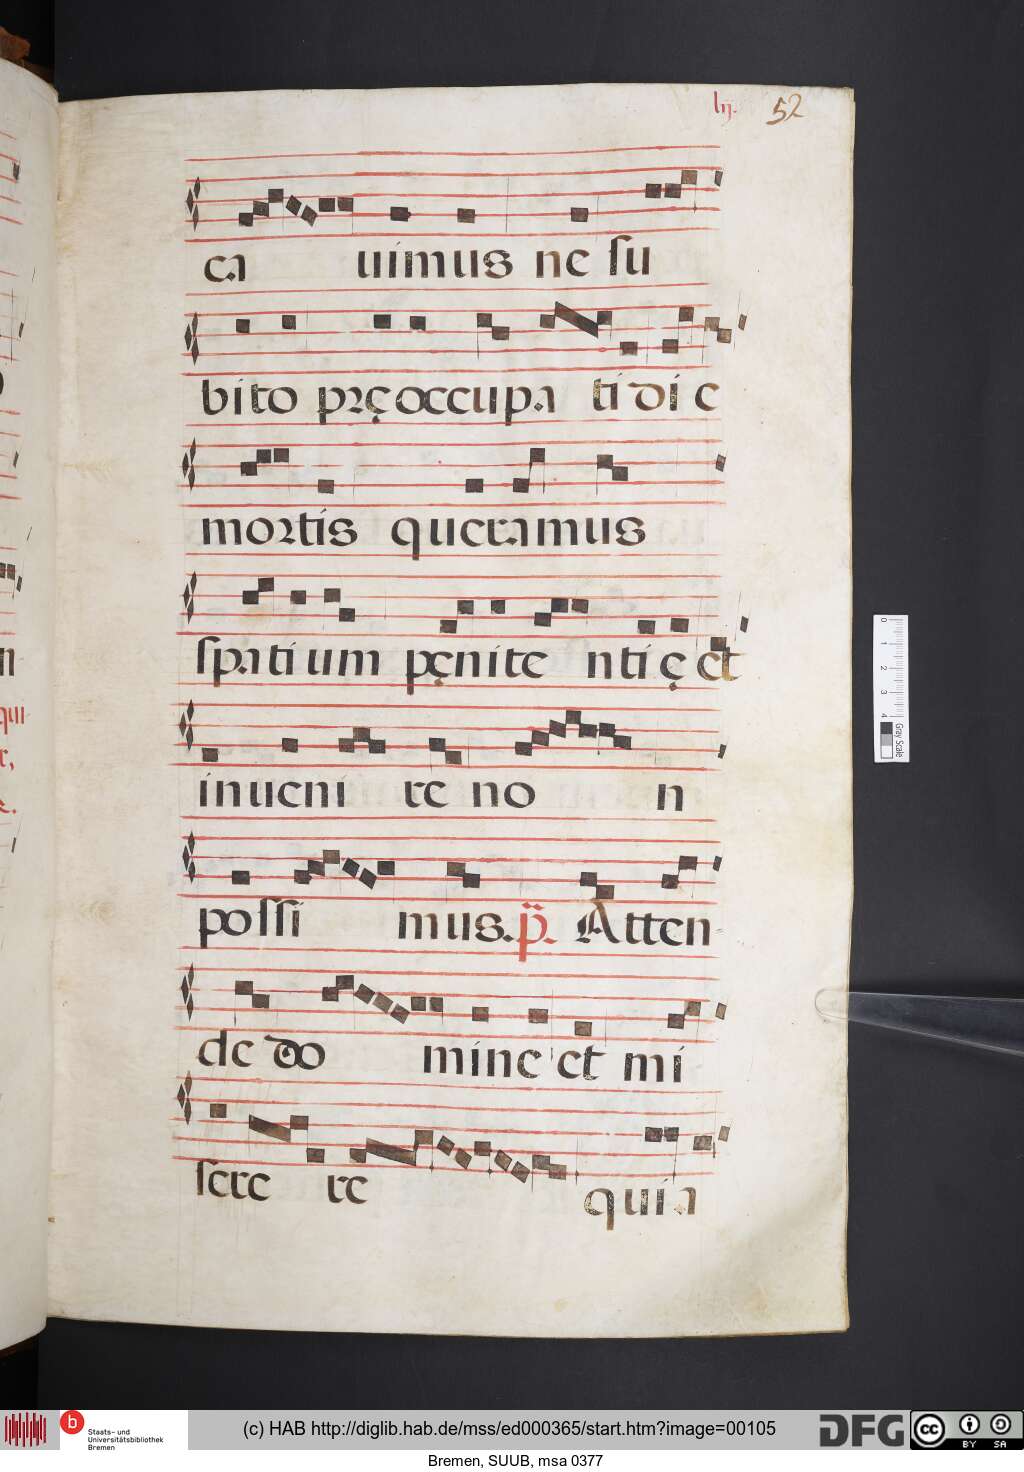 lij. 52
ca uimus ne ſu
bito pręoccupa ti die
mortis queramus
ſpatium pęnite ntię et
inueni re no n
poſſi mus. p̈. Atten
de do mine et mi
ſere re quia
0 1 2 3 4 Gray Scale
b Staats- und Universitätsbibliothek Bremen
(c) HAB http://diglib.hab.de/mss/ed000365/start.htm?image=00105
DFG cc BY SA
Bremen, SUUB, msa 0377